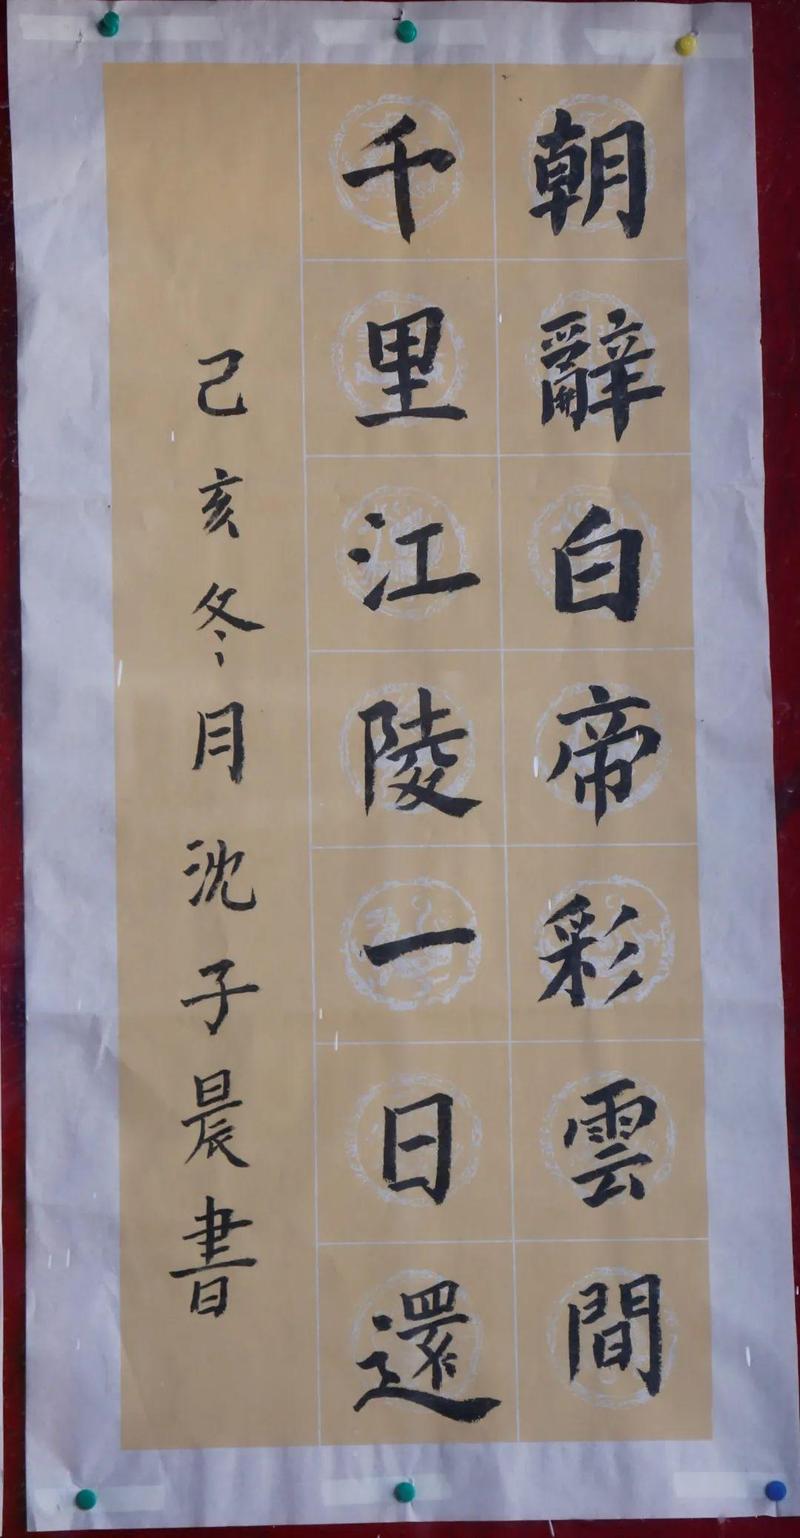 朝辭白帝彩雲間
千里江陵一日還
己亥冬月沈子晨書